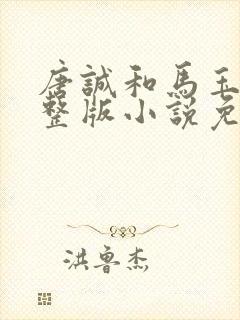 唐誠和馬玉
整版小說免
洪魯杰